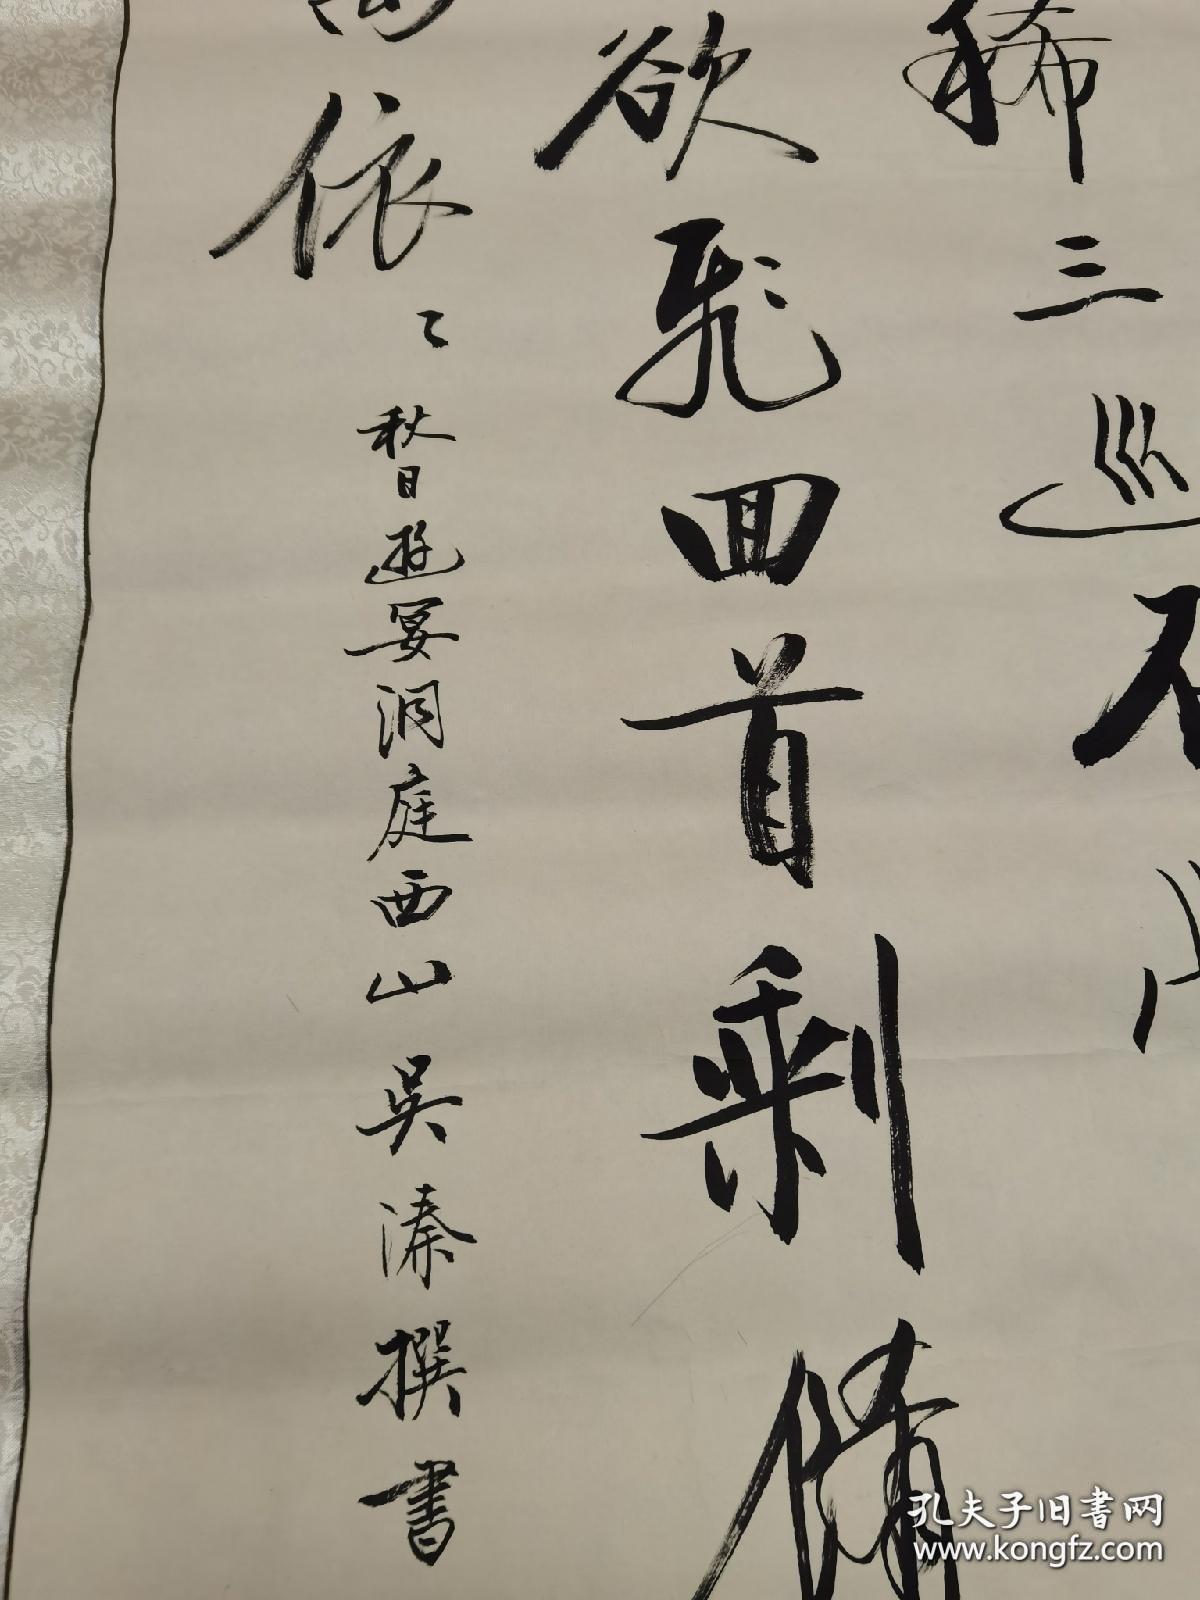 稀三巡不
欲飛回首剩情
依〻
秋日遊宴洞庭西山吳溱撰書
孔夫子旧书网
www.kongfz.com